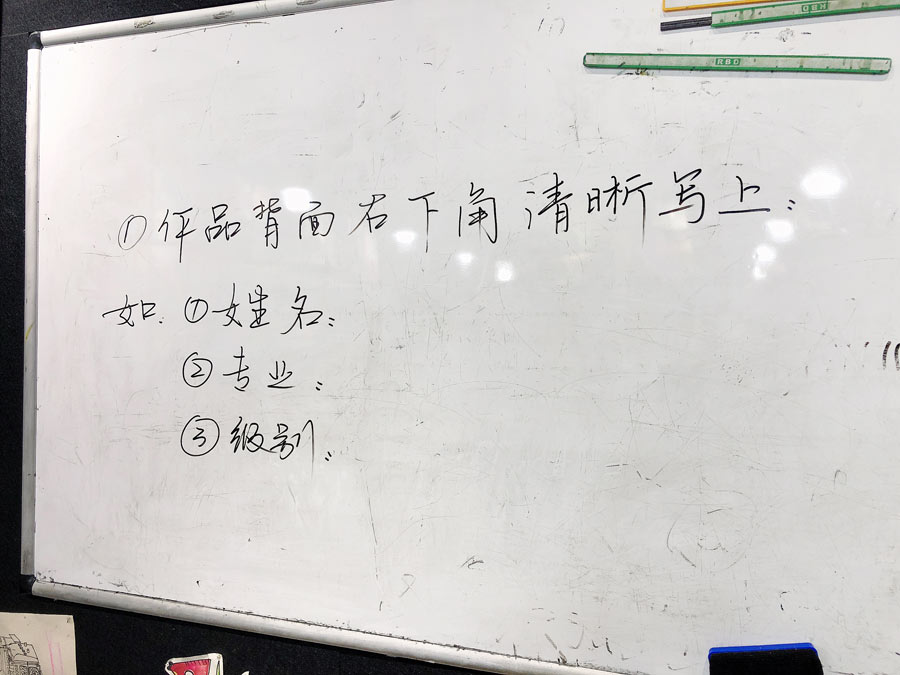 RBD
①作品背面右下角清晰写上:
如. ①姓名:
②专业:
③级别: